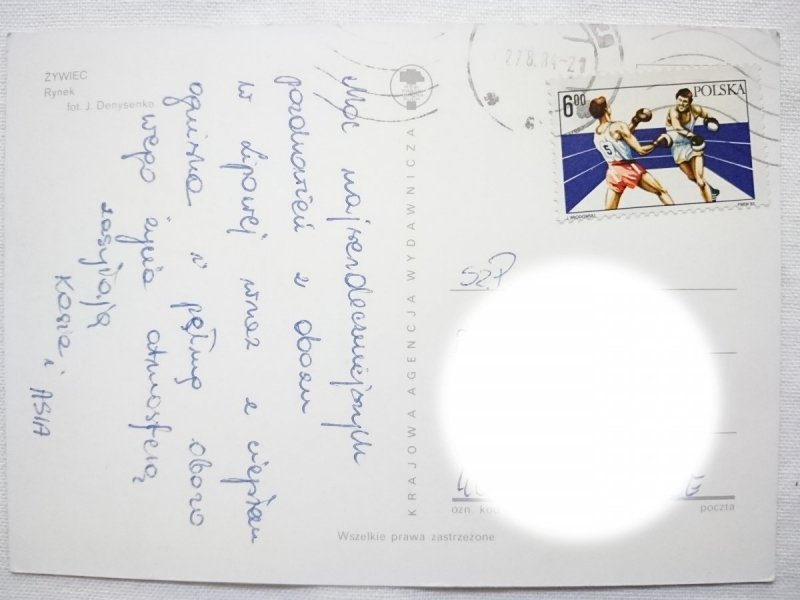 ŻYWIEC
Rynek
fot. J. Denysenko
Moc najserdeczniejszych
pozdrowień z obozu
w Lipowej wraz z ciepłem
ogniska i pełną obozo
wego życia atmosferą
zasyłają
Kasia i ASIA
KRAJOWA AGENCJA WYDAWNICZA
27.8.84-21
6 00
POLSKA
5
SZ.P
ozn. kod
poczta
Wszelkie prawa zastrzeżone